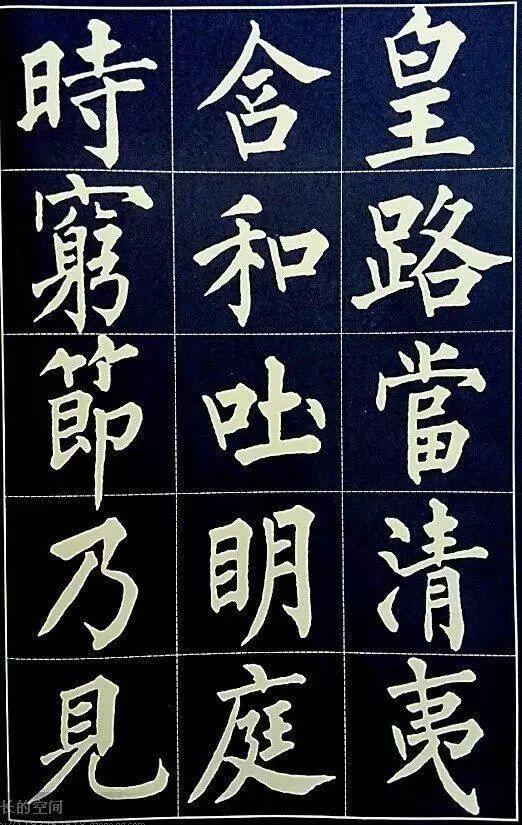 皇路當清夷
含和吐明庭
時窮節乃見
长的空间